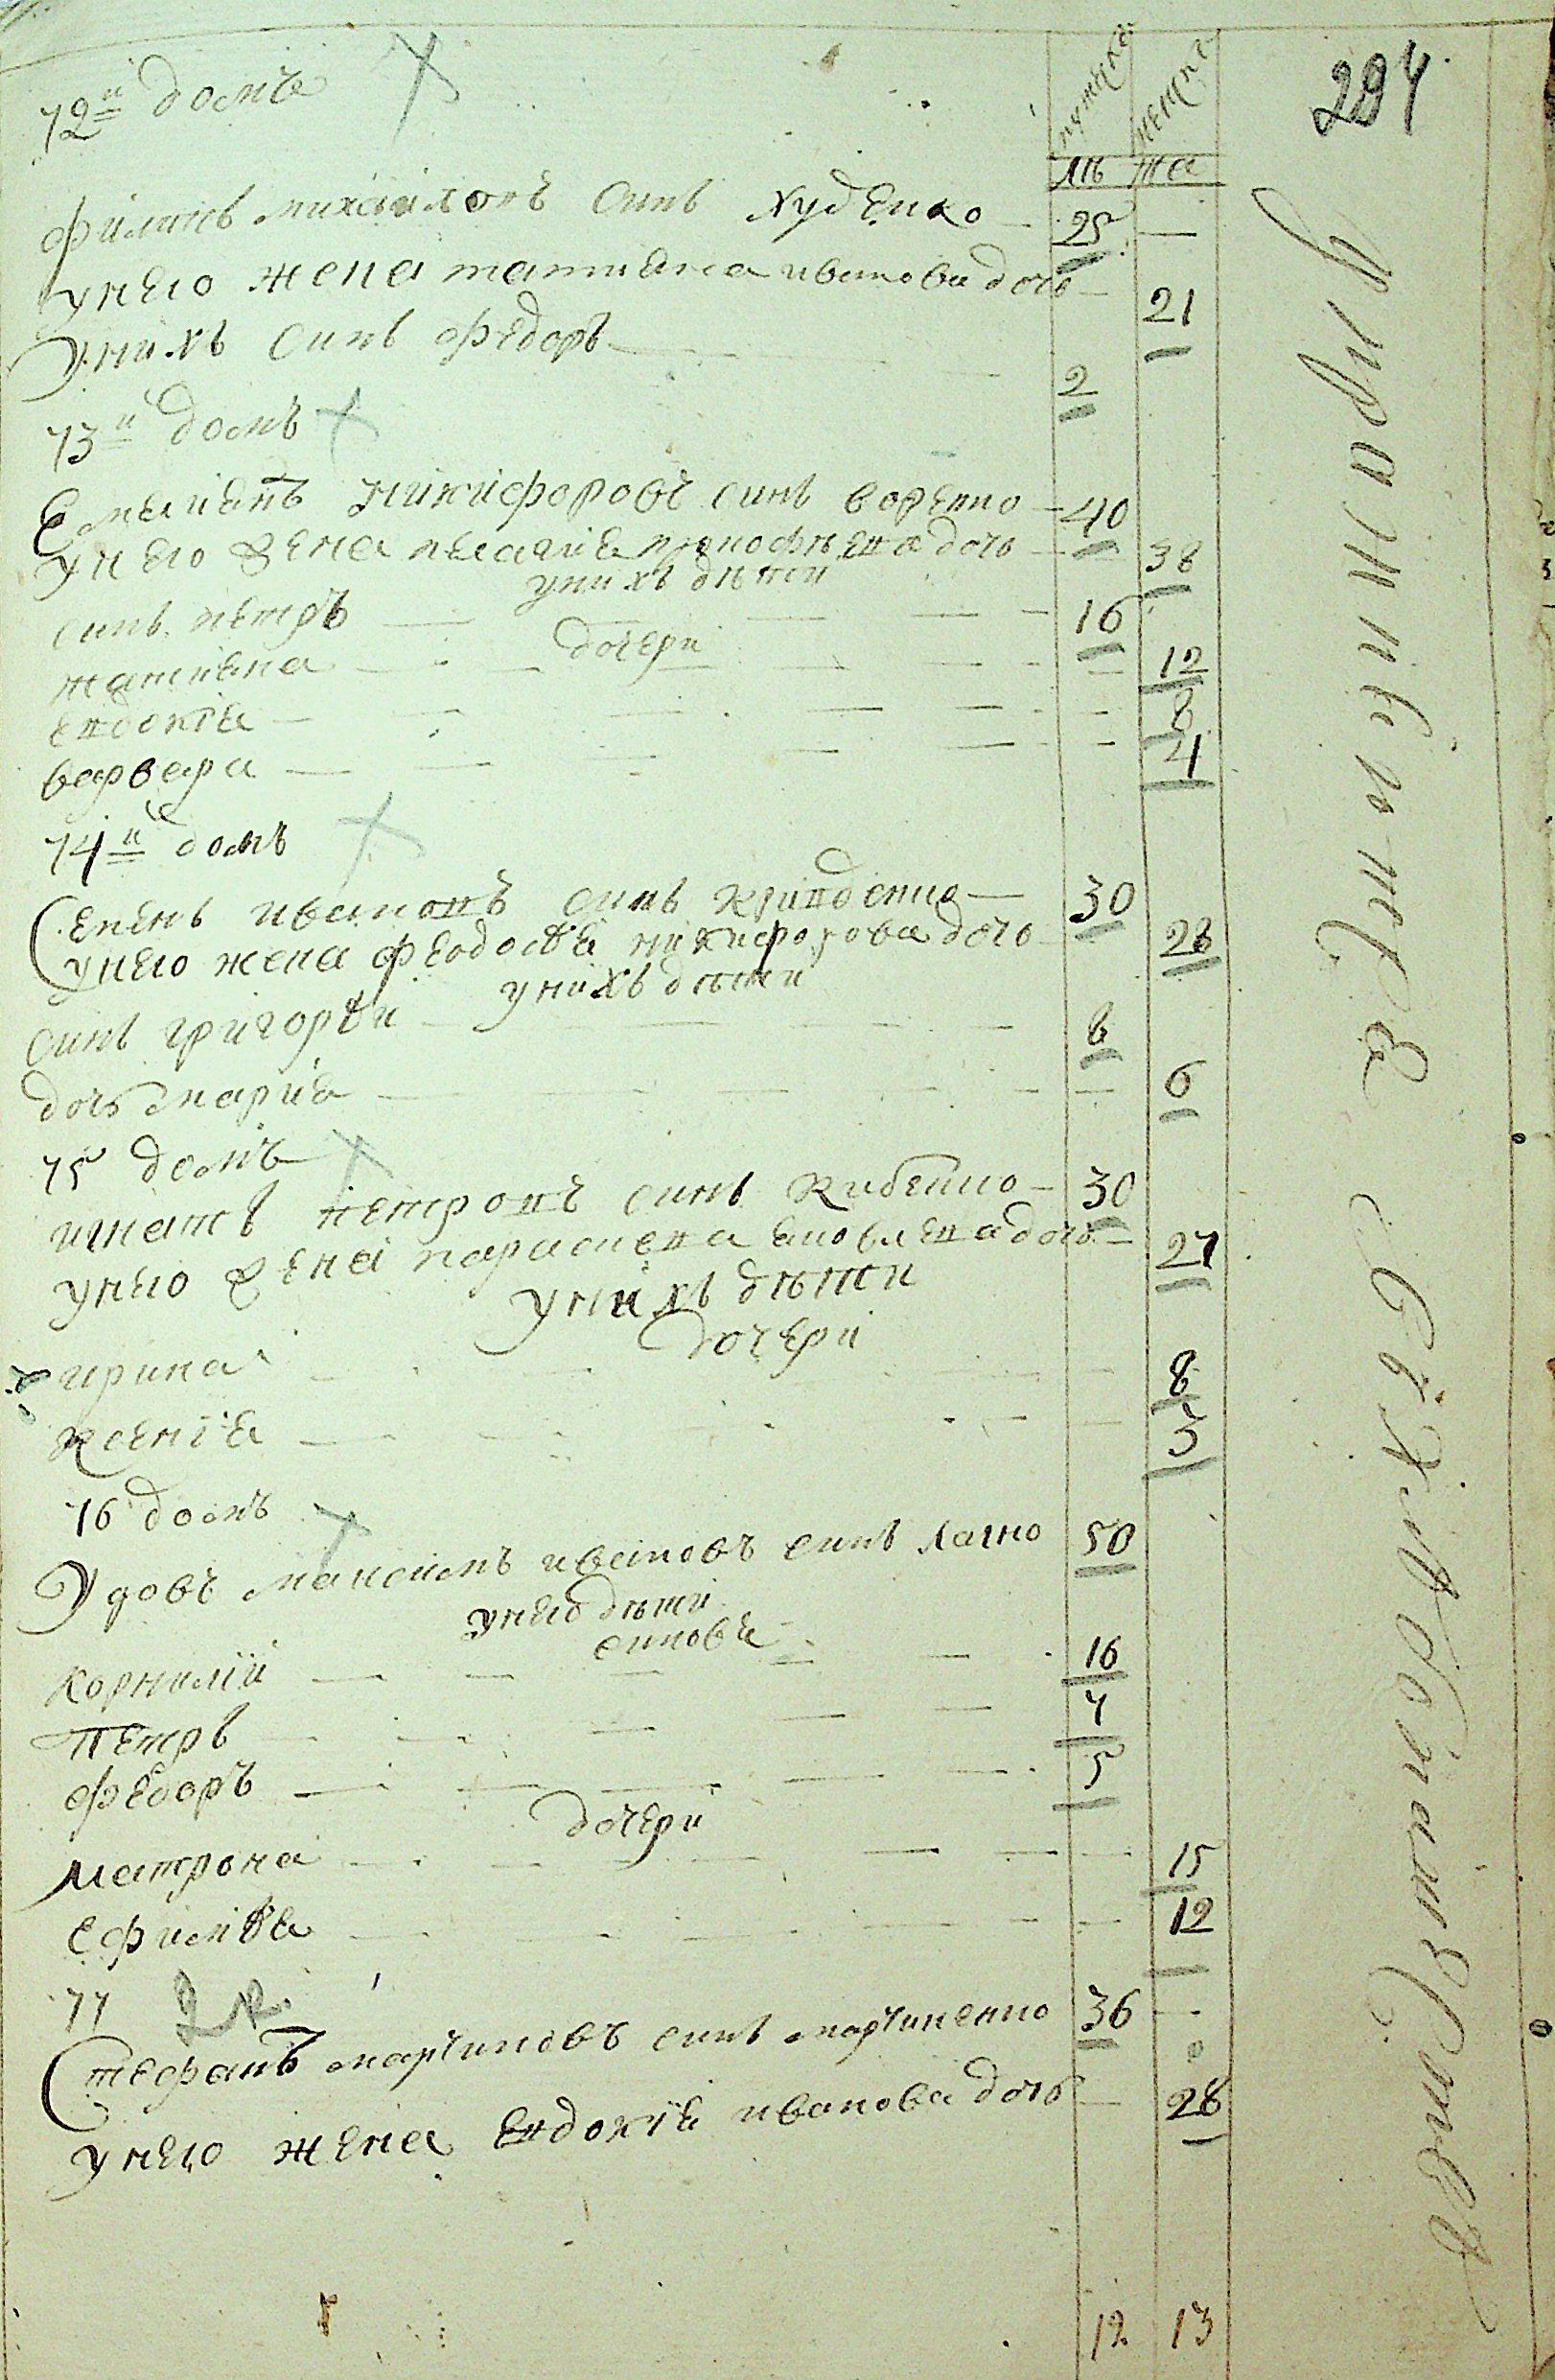 294
мужска женска
лѣ та
72й домъ
филипъ михайловъ синъ худенко 25
унего жена татияна иванова дочь 21
унихъ синъ федоръ 2
73й домъ
Емелианъ никифоровъ синъ 40
унего жена пелагия дочь 38
унихъ дѣти
синъ петръ 16
дочери
татияна 12
евдокїя 8
варвара 4
74й домъ
Семенъ ивановъ синъ 30
унего жена феодосїя никифорова дочь 28
унихъ дѣти
синъ григорїй 8
дочь мария 6
75 домъ
игнатъ петровъ синъ 30
унего жена параскева яковлева дочь 27
унихъ дѣти
дочери
ирина 8
ксенїя 3
76 домъ
Удовъ максимъ ивановъ синъ лагно 50
унего дѣти
синовя
корнилїй 16
Петръ 7
федоръ 5
дочери
матрона 15
ефимїя 12
77
Стефанъ мартиновъ синъ мартиненко 36
унего жена Евдокїя иванова дочь 28
12 13